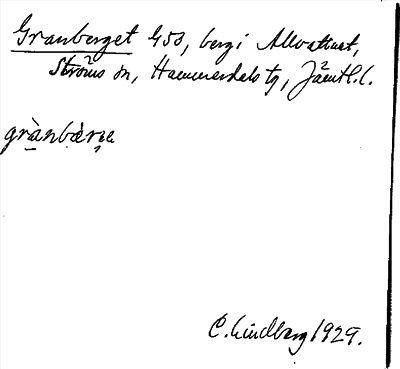 Granberget 453, berg i Allvattnet,
Ströms sn, Hammerdals tg, Jämtl. l.
grànbæ̀rꞷe
C. Lindberg 1929.